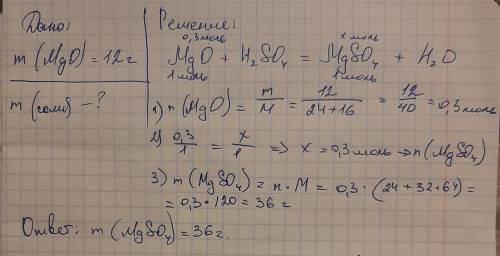 Дано:
m (MgO) = 12 г
m (соли) - ?
Решение:
0,3 моль x моль
MgO + H₂SO₄ = MgSO₄ + H₂O
1 моль 1 моль
1) n (MgO) = m/M = 12/(24+16) = 12/40 = 0,3 моль
2) 0,3/1 = x/1 => x = 0,3 моль → n (MgSO₄)
3) m (MgSO₄) = n · M = 0,3 · (24+32+64) =
= 0,3 · 120 = 36 г
Ответ: m (MgSO₄) = 36 г.